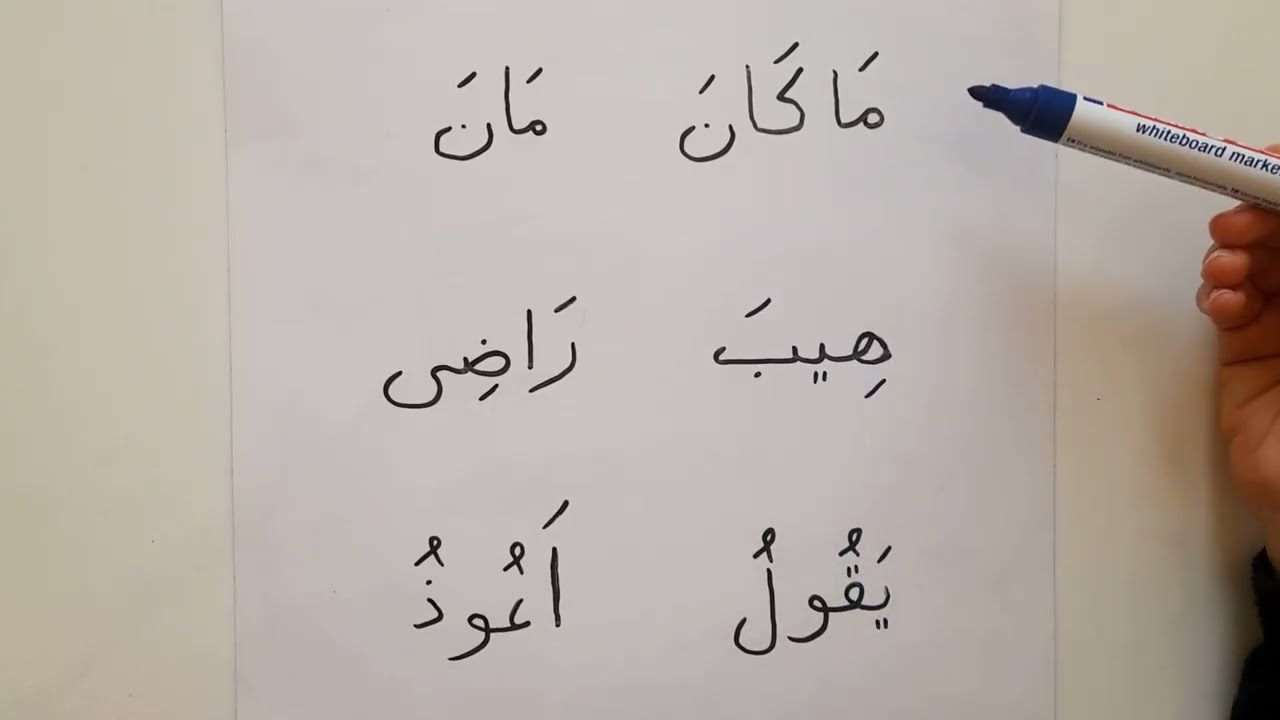 مَا كَانَ مَانَ
هِيبَ رَاضِى
يَقُولُ اَعُوذُ
whiteboard marke